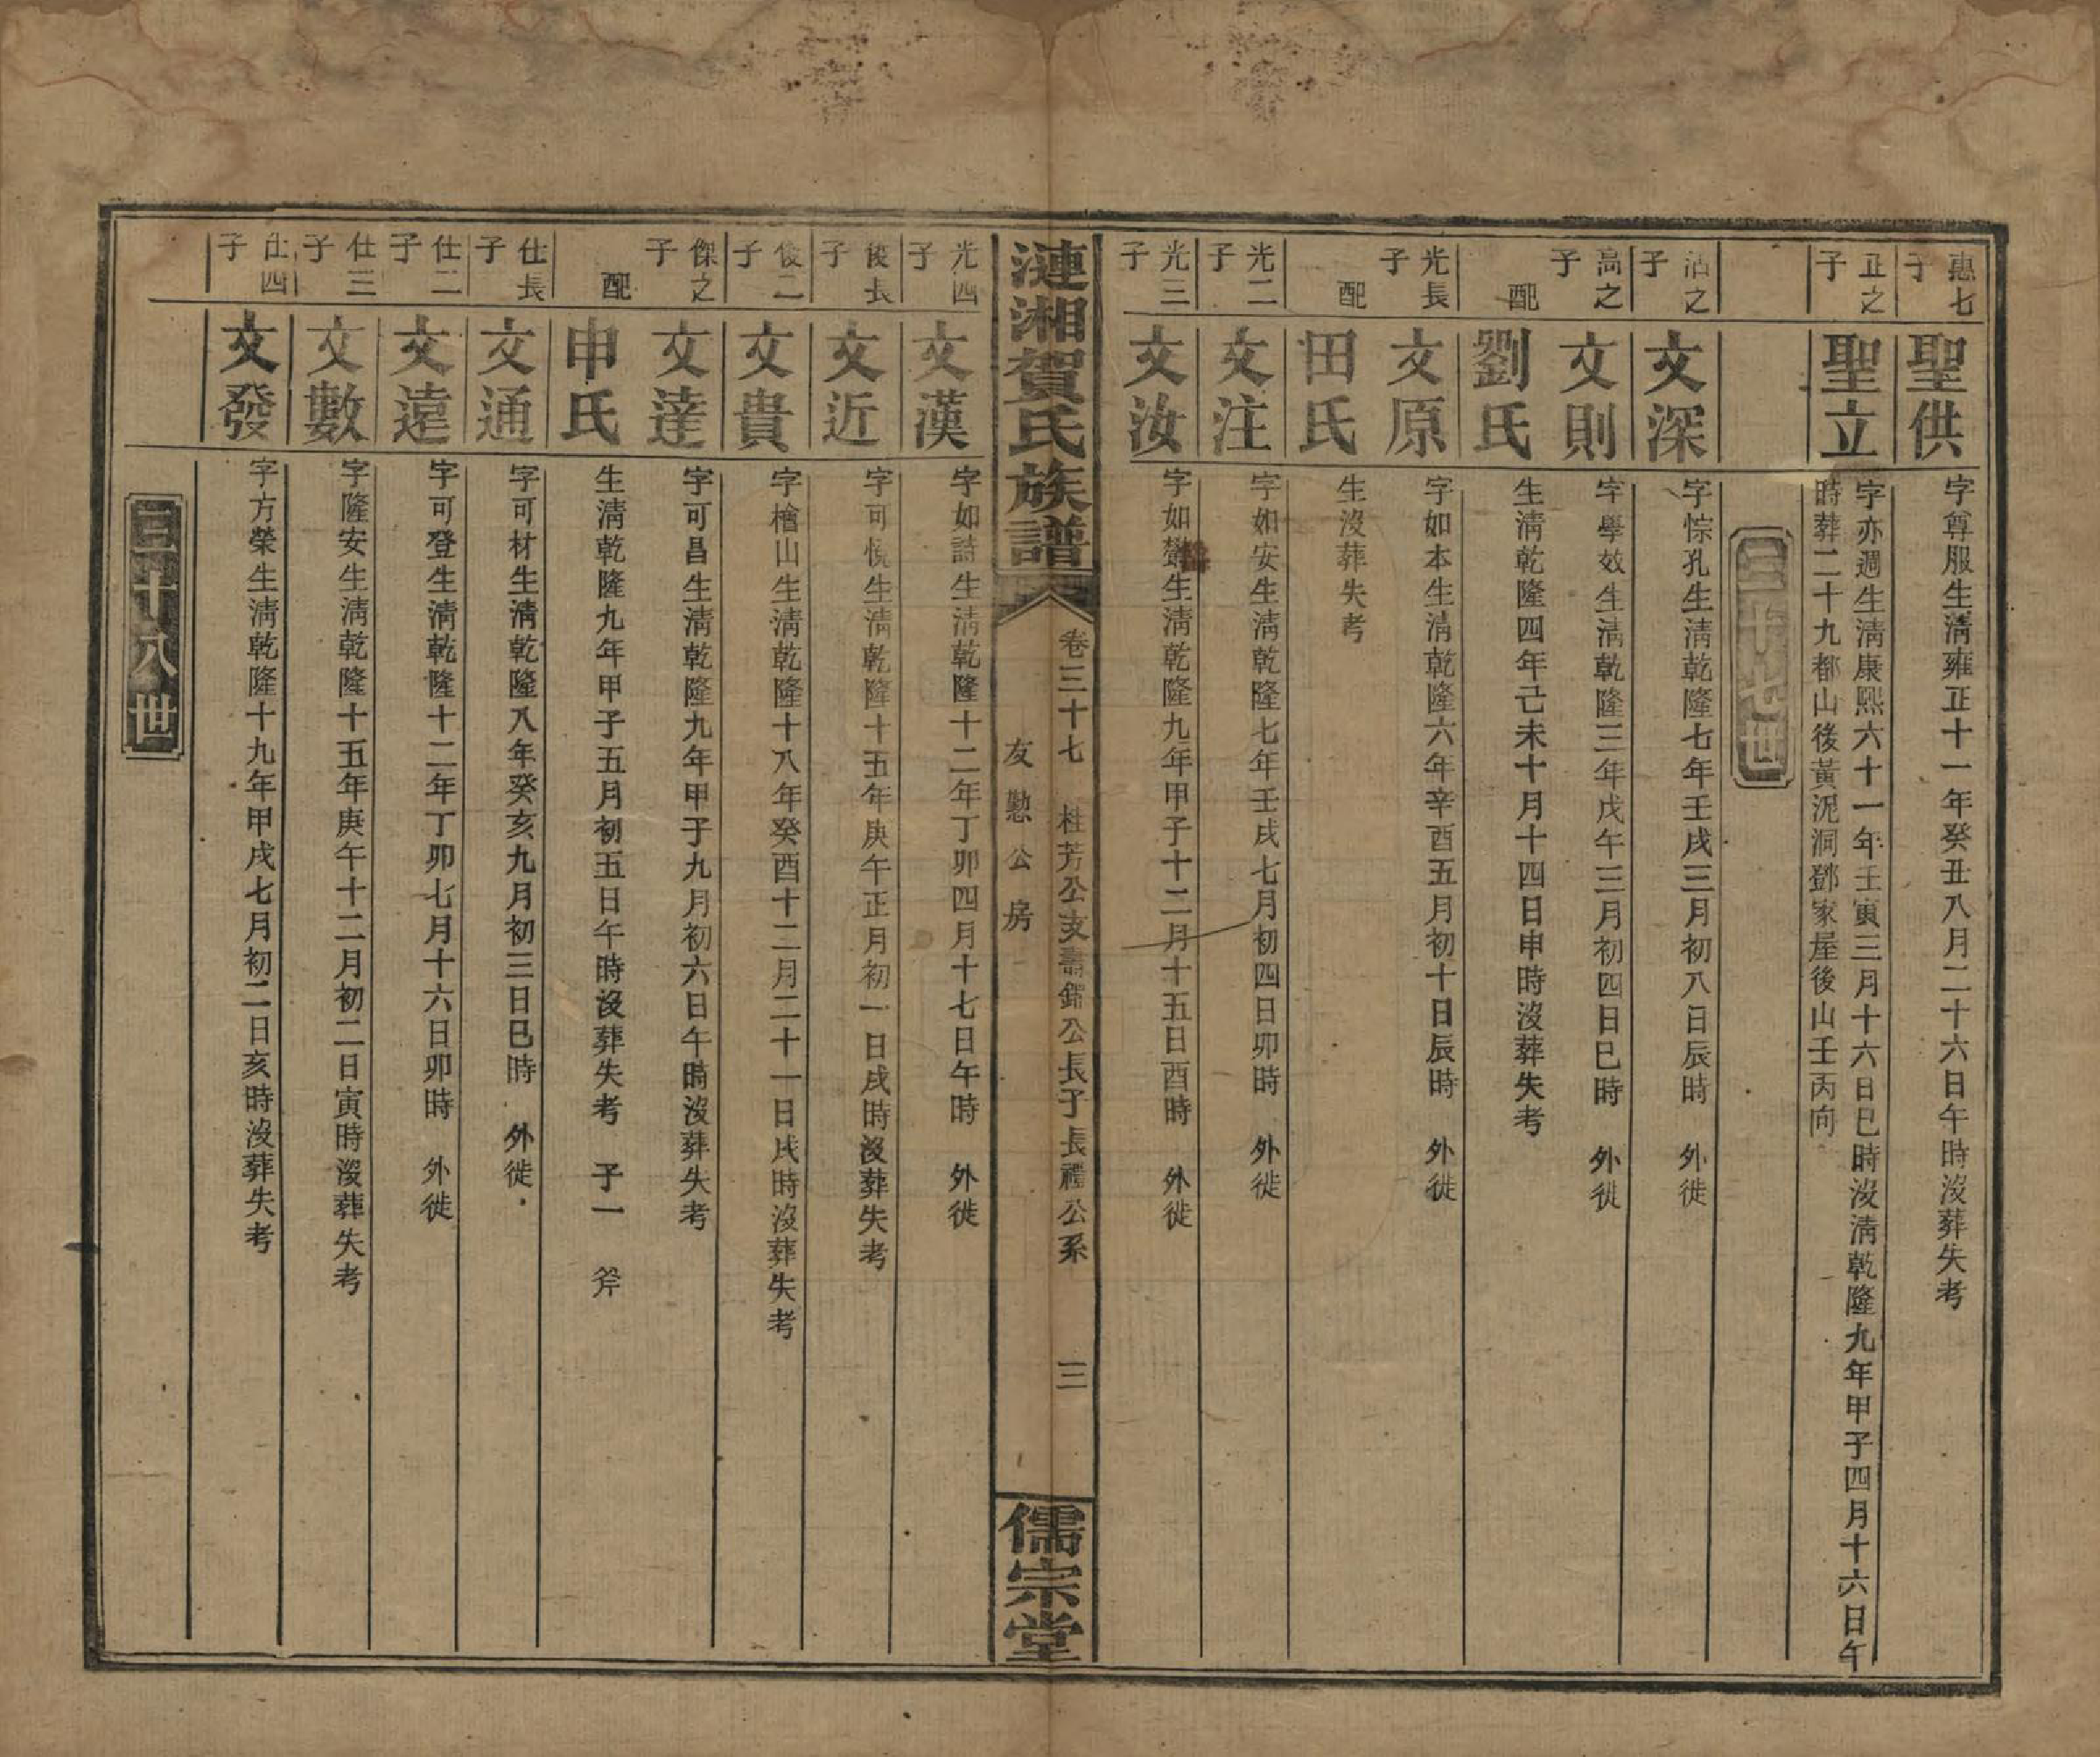 惠七子
聖供
字尊服生淸雍正十一年癸丑八月二十六日午時沒葬失考
正之子
聖立
字亦週生淸康熙六十一年壬寅三月十六日巳時沒淸乾隆九年甲子四月十六日午
時葬二十九都山後黃泥洞鄧家屋後山壬丙向
三十七世
沾之子
文深
字悰孔生淸乾隆七年壬戌三月初八日辰時 外徙
高之子
文則
字學效生淸乾隆三年戊午三月初四日巳時 外徙
配
劉氏
生淸乾隆四年己未十月十四日申時沒葬失考
光長子
文原
字如本生淸乾隆六年辛酉五月初十日辰時 外徙
配
田氏
生沒葬失考
光二子
文注
字如安生淸乾隆七年壬戌七月初四日卯時 外徙
光三子
文汝
字如生淸乾隆九年甲子十二月十五日酉時 外徙
漣湘賀氏族譜
卷三十七 桂芳公支壽錦公長子長禮公系 三
友懃公房
儒宗堂
光四子
文漢
字如詩生淸乾隆十二年丁卯四月十七日午時 外徙
俊長子
文近
字可悅生淸乾隆十五年庚午正月初一日戌時沒葬失考
俊二子
文貴
字檜山生淸乾隆十八年癸酉十二月二十一日戌時沒葬失考
傑之子
文達
字可昌生淸乾隆九年甲子九月初六日午時沒葬失考
配
申氏
生淸乾隆九年甲子五月初五日午時沒葬失考 子一 斧
仕長子
文通
字可材生淸乾隆八年癸亥九月初三日巳時 外徙
仕二子
文遠
字可登生淸乾隆十二年丁卯七月十六日卯時 外徙
仕三子
文數
字隆安生淸乾隆十五年庚午十二月初二日寅時沒葬失考
仕四子
文發
字方榮生淸乾隆十九年甲戌七月初二日亥時沒葬失考
三十八世